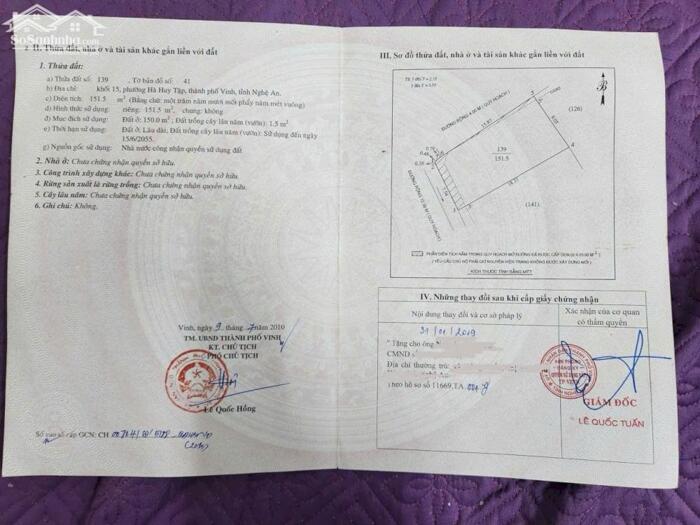 SoSanhnha.com
II. Thửa đất, nhà ở và tài sản khác gắn liền với đất
1. Thửa đất:
a) Thửa đất số: 139 , Tờ bản đồ số: 41
b) Địa chỉ: khối 15, phường Hà Huy Tập, thành phố Vinh, tỉnh Nghệ An.
c) Diện tích: 151.5 m² (Bằng chữ: một trăm năm mươi mốt phẩy năm mét vuông)
d) Hình thức sử dụng: riêng: 151.5 m², chung: không
đ) Mục đích sử dụng: Đất ở: 150.0 m²; Đất trồng cây lâu năm (vườn): 1.5 m²
e) Thời hạn sử dụng: Đất ở: Lâu dài; Đất trồng cây lâu năm (vườn): Sử dụng đến ngày
15/6/2055.
g) Nguồn gốc sử dụng: Nhà nước công nhận quyền sử dụng đất
2. Nhà ở: Chưa chứng nhận quyền sở hữu.
3. Công trình xây dựng khác: Chưa chứng nhận quyền sở hữu.
4. Rừng sản xuất là rừng trồng: Chưa chứng nhận quyền sở hữu.
5. Cây lâu năm: Chưa chứng nhận quyền sở hữu.
6. Ghi chú: Không.
Vinh, ngày 9 tháng 7 năm 2010
TM. UBND THÀNH PHỐ VINH
KT. CHỦ TỊCH
PHÓ CHỦ TỊCH
Lê Quốc Hồng
Số vào sổ cấp GCN: CH
III. Sơ đồ thửa đất, nhà ở và tài sản khác gắn liền với đất
B
ĐƯỜNG RỘNG 4.00 M ( QUY HOẠCH )
(126)
139
151.5
4
5
(141)
ĐƯỜNG RỘNG M ( QUY HOẠCH )
PHẦN DIỆN TÍCH NẰM TRONG QUY HOẠCH MỞ ĐƯỜNG ĐÃ ĐƯỢC CẤP
( YÊU CẦU CHỦ HỘ PHẢI GIỮ NGUYÊN HIỆN TRẠNG KHÔNG ĐƯỢC XÂY DỰNG MỚI )
KÍCH THƯỚC TÍNH BẰNG MÉT
IV. Những thay đổi sau khi cấp giấy chứng nhận
Nội dung thay đổi và cơ sở pháp lý
Xác nhận của cơ quan
có thẩm quyền
/2019
Tặng cho ông
CMND s
Địa chỉ thường trú
theo hồ sơ số 11669.TA.
GIÁM ĐỐC
LÊ QUỐC TUẤN